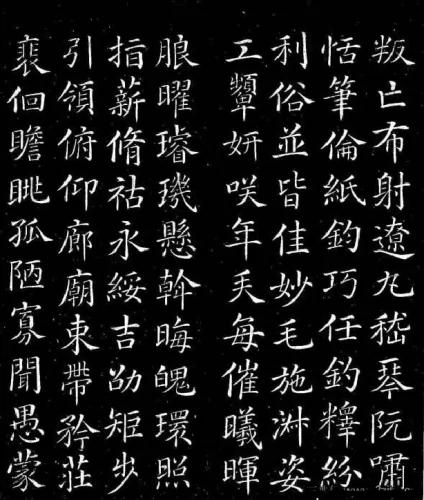 叛亡布射遼丸嵇琴阮嘯
恬筆倫紙鈞巧任釣釋紛
利俗並皆佳妙毛施淑姿
工顰妍咲年矢每催曦暉
朗曜璿璣懸斡晦魄環照
指薪脩祜永綏吉劭矩步
引領俯仰廊廟束帶矜莊
裵佪瞻眺孤陋寡聞愚蒙